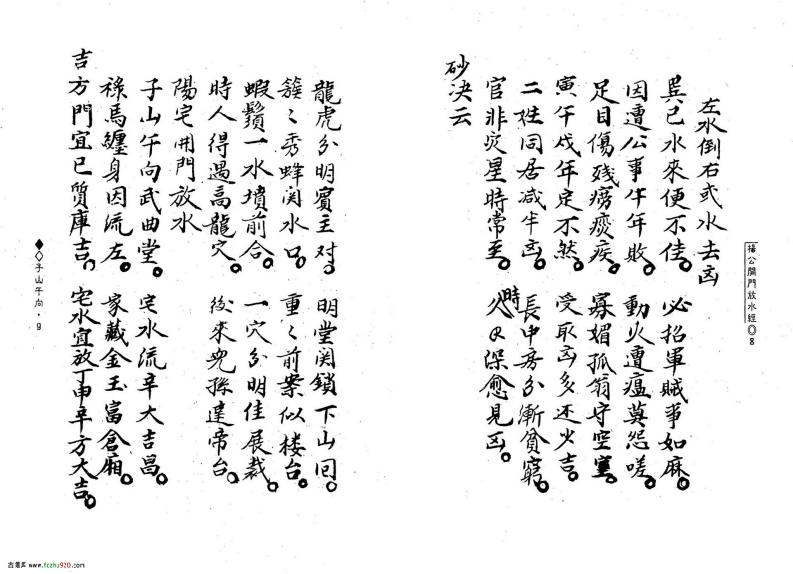 左水倒右或水去凶
巽巳水來便不佳。必招軍賊事如麻。
因遭公事牛年敗。動火遭瘟莫怨嗟。
足目傷殘癆瘓疾。寡媚孤翁守空室。
寅午戌年定不然。受取凶多还少吉。
二姓同居减半凶。長中房分漸貧窮。
官非灾星時常至。久时日深愈見凶。
砂决云
楊公開門放水經 8
龍虎分明賓主对。明堂関鎖下山囘。
簇〻秀蜂関水口。重〻前案似楼台。
蝦鬚一水墳前合。一穴分明佳展裁。
時人得遇高龍穴。後來兒孫達帝台。
陽宅開門放水
子山午向武曲堂。宅水流辛大吉昌。
祿馬纏身因流左。家藏金玉富倉厢。
吉方門宜巳質庫吉。宅水宜放丁申辛方大吉。
子山午向·9
吉着库 www.fczhu920.com